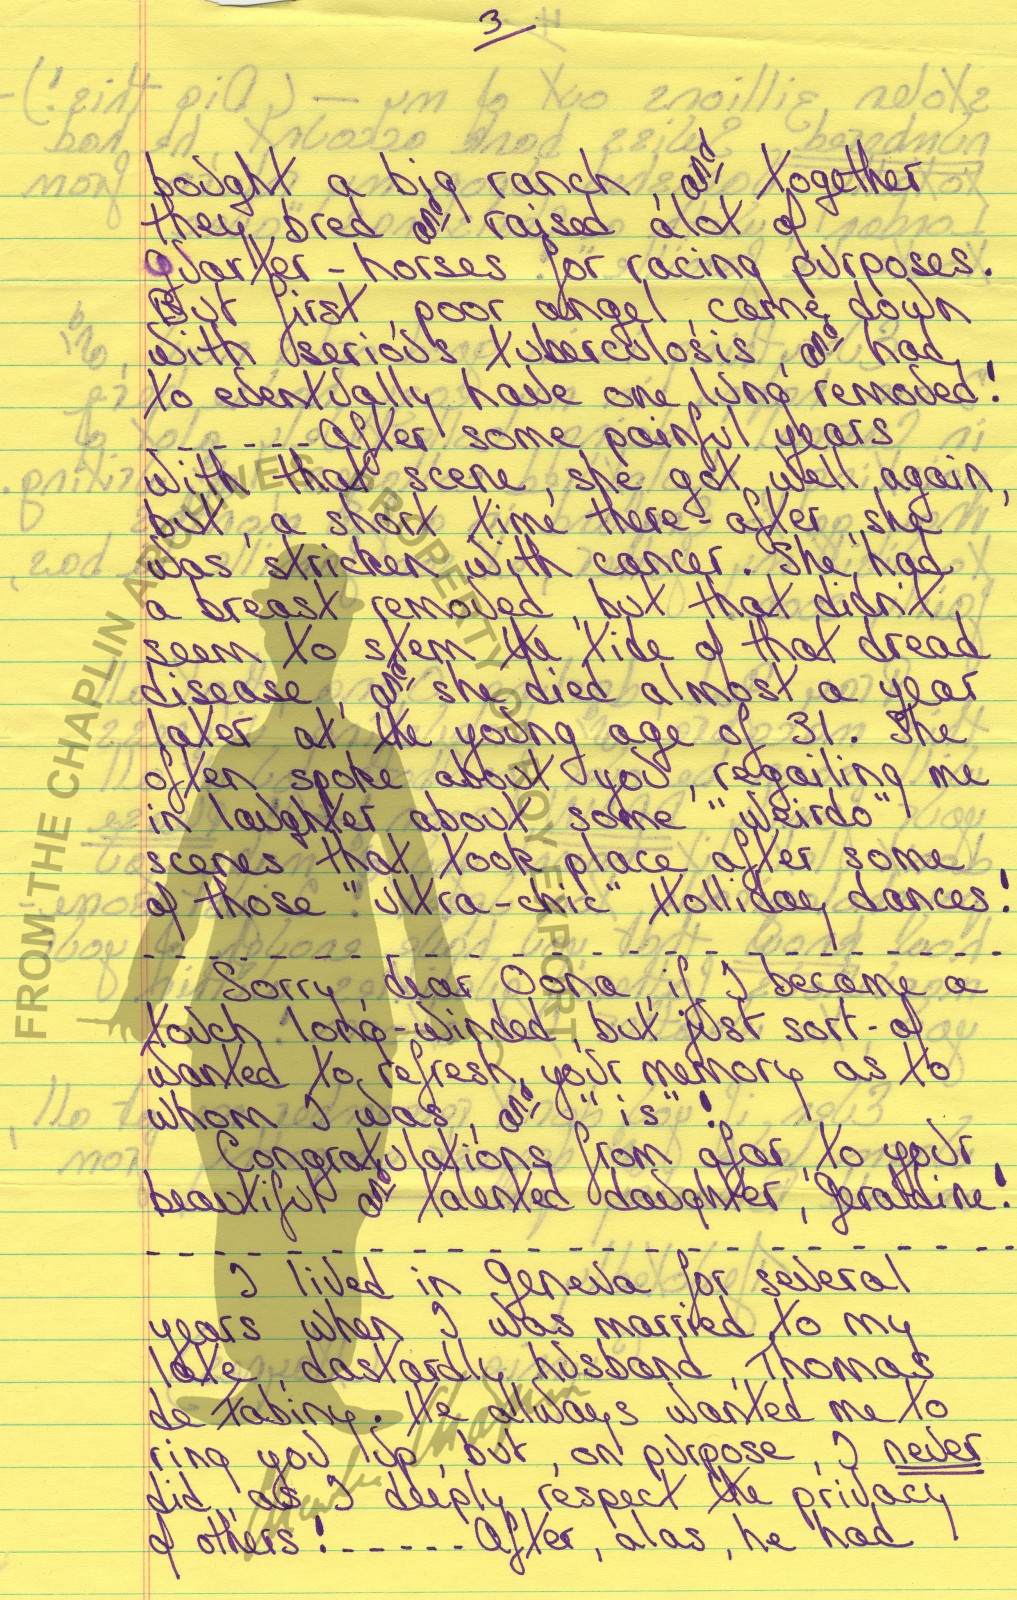 3
bought a big ranch, and together
they bred and raised alot of
Quarter-horses for racing purposes.
But first, poor angel, came down
with serious tuberculosis, and had
to eventually have one lung removed!
------After some painful years
with that scene, she got well again,
but, a short time there-after, she
was stricken with cancer. She had
a breast removed, but that didn't
seem to stem the tide of that dread
disease, and she died almost a year
later at the young age of 31. She
often spoke about you, regailing me
in laughter about some "weirdo"
scenes that took place after some
of those "ultra-chic" Holliday dances!
Sorry, dear Oona, if I became a
touch long-winded, but just sort-of
wanted to refresh your memory as to
whom I was, and "is"!
Congratulations from afar to your
beautiful and talented daughter, Geraldine!
I lived in Geneva for several
years when I was married to my
late, dastardly husband, Thomas
de Tabiny. He always wanted me to
ring you up, but, on purpose, I never
did, as I deeply respect the privacy
of others!------After, alas, he had
FROM THE CHAPLIN ARCHIVES PROPERTY OF ROY EXPORT